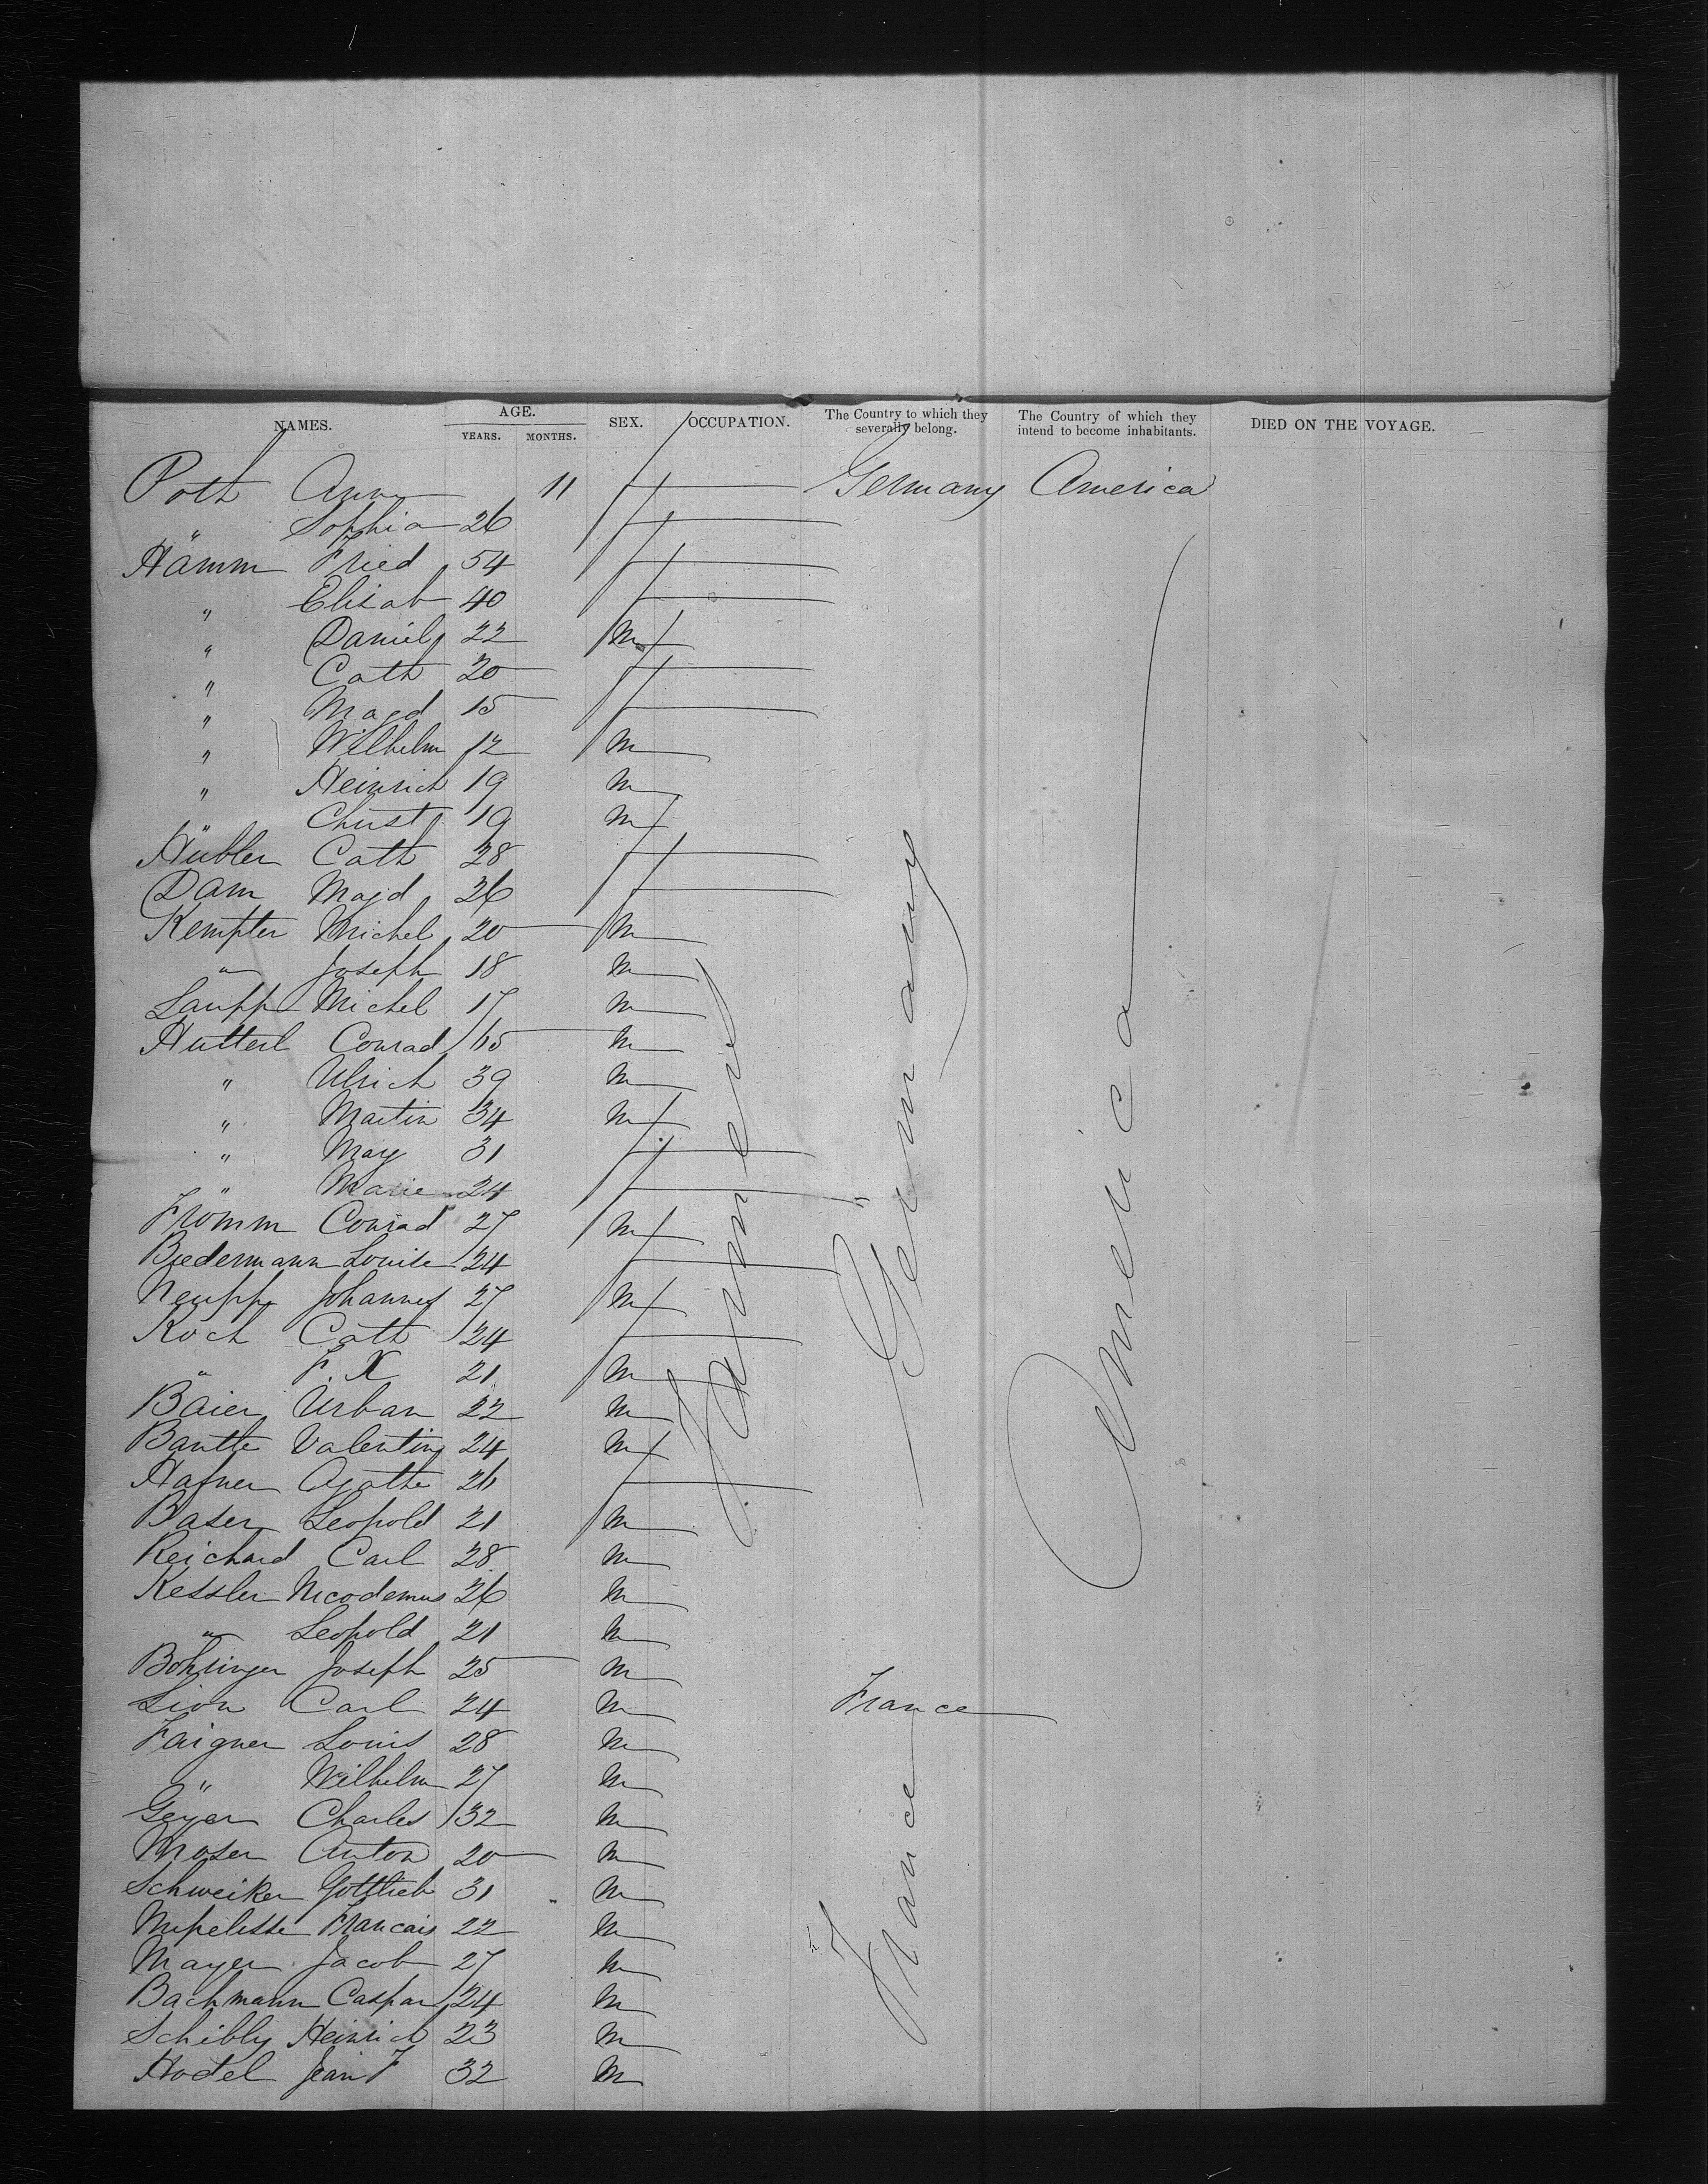 NAMES. AGE. SEX. OCCUPATION. The Country to which they severally belong. The Country of which they intend to become inhabitants. DIED ON THE VOYAGE.
YEARS. MONTHS.
Poth Anna 11 f Germany America
" Sophia 26 f
Hamm Fried 54 f
" Elisab 40 f
" Daniel 22 m
" Cath 20 f
" Magd 15 f
" Wilhelm 12 m
" Heinrich 19 m
" Christ 19 m
Hübler Cath 28 f
Dam Magd 26 f
Kempter Michel 20 m
" Joseph 18 m
Laupp Michel 17 m
Hutterl Conrad 65 m
" Ulrich 39 m
" Martin 34 m
" May 31 f
" Marie 24 f
Fromm Conrad 27 m
Biedermann Louise 24 f
Neupp Johannes 27 m
Koch Cath 24 f
" F. X 21 m
Baier Urban 22 m
Bantte Valentin 24 m
Hafner Agathe 26 f
Baser Leopold 21 m
Reichard Carl 28 m
Kessler Nicodemus 26 m
" Leopold 21 m
Bohsinger Joseph 25 m
Lion Carl 24 m France
Faigner Louis 28 m
" Wilhelm 27 m
Geyer Charles 32 m
Moser Anton 20 m
Schweiker Gottlieb 31 m
Francais 22 m
Mayer Jacob 27 m
Bachmann Caspar 24 m
Schibly Heinrich 23 m
Hodel Jean F 32 m
Farmers
" Germany
America
" France